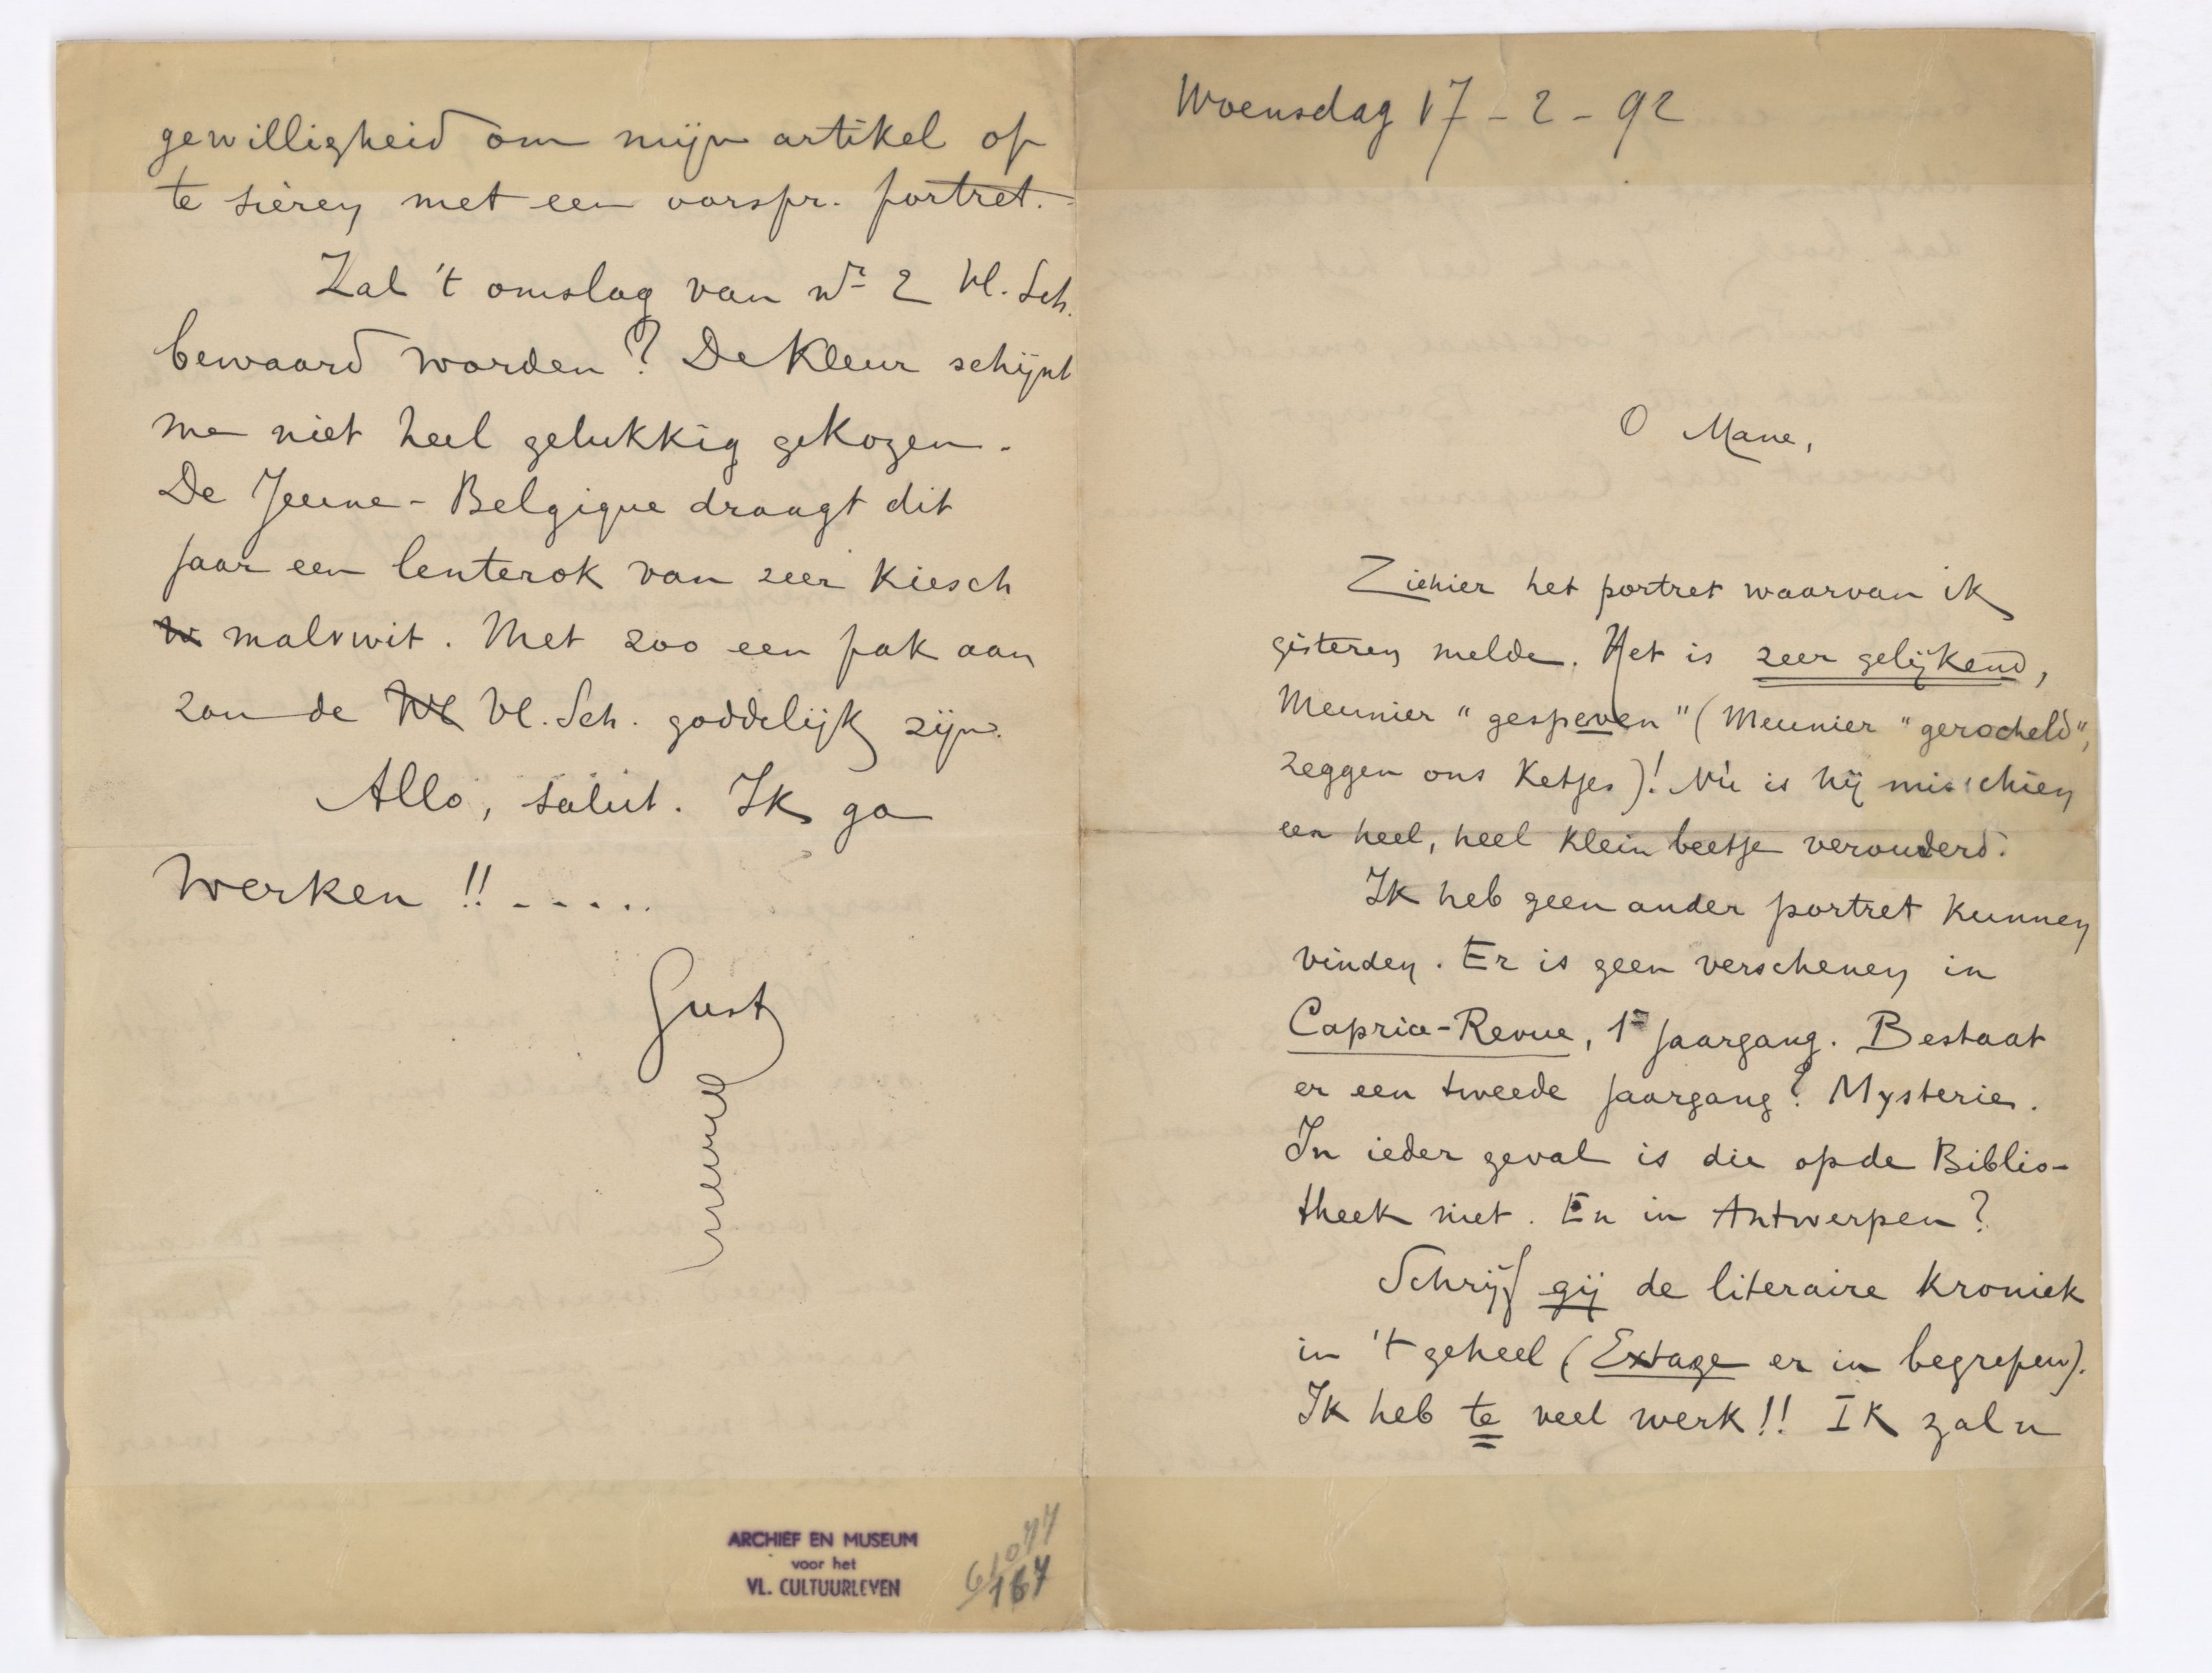 Woensdag 17-2-92
O Mane,
Ziehier het portret waarvan ik
gisteren melde. Het is zeer gelijkend,
Meunier "gespeven" (Meunier "gerocheld",
zeggen ons Ketjes)! Nù is hij misschien
een heel, heel klein beetje verouderd.
Ik heb geen ander portret kunnen
vinden. Er is geen verschenen in
Caprice-Revue, 1e jaargang. Bestaat
er een tweede jaargang? Mysterie.
In ieder geval is die op de Biblio-
theek niet. En in Antwerpen?
Schrijf gij de literaire kroniek
in 't geheel (Extaze er in begrepen).
Ik heb te veel werk!! Ik zal u
gewilligheid om mijn artikel op
te sieren met een oorspr. portret.
Zal 't omslag van Nr 2 Vl. Sch.
bewaard worden? De kleur schijnt
me niet heel gelukkig gekozen.
De Jeune-Belgique draagt dit
jaar een lenterok van zeer kiesch
malvwit. Met zoo een pak aan
zou de Vl. Sch. goddelijk zijn.
Allo, salut. Ik ga
werken!!.....
Gust
ARCHIEF EN MUSEUM
voor het
VL. CULTUURLEVEN
167